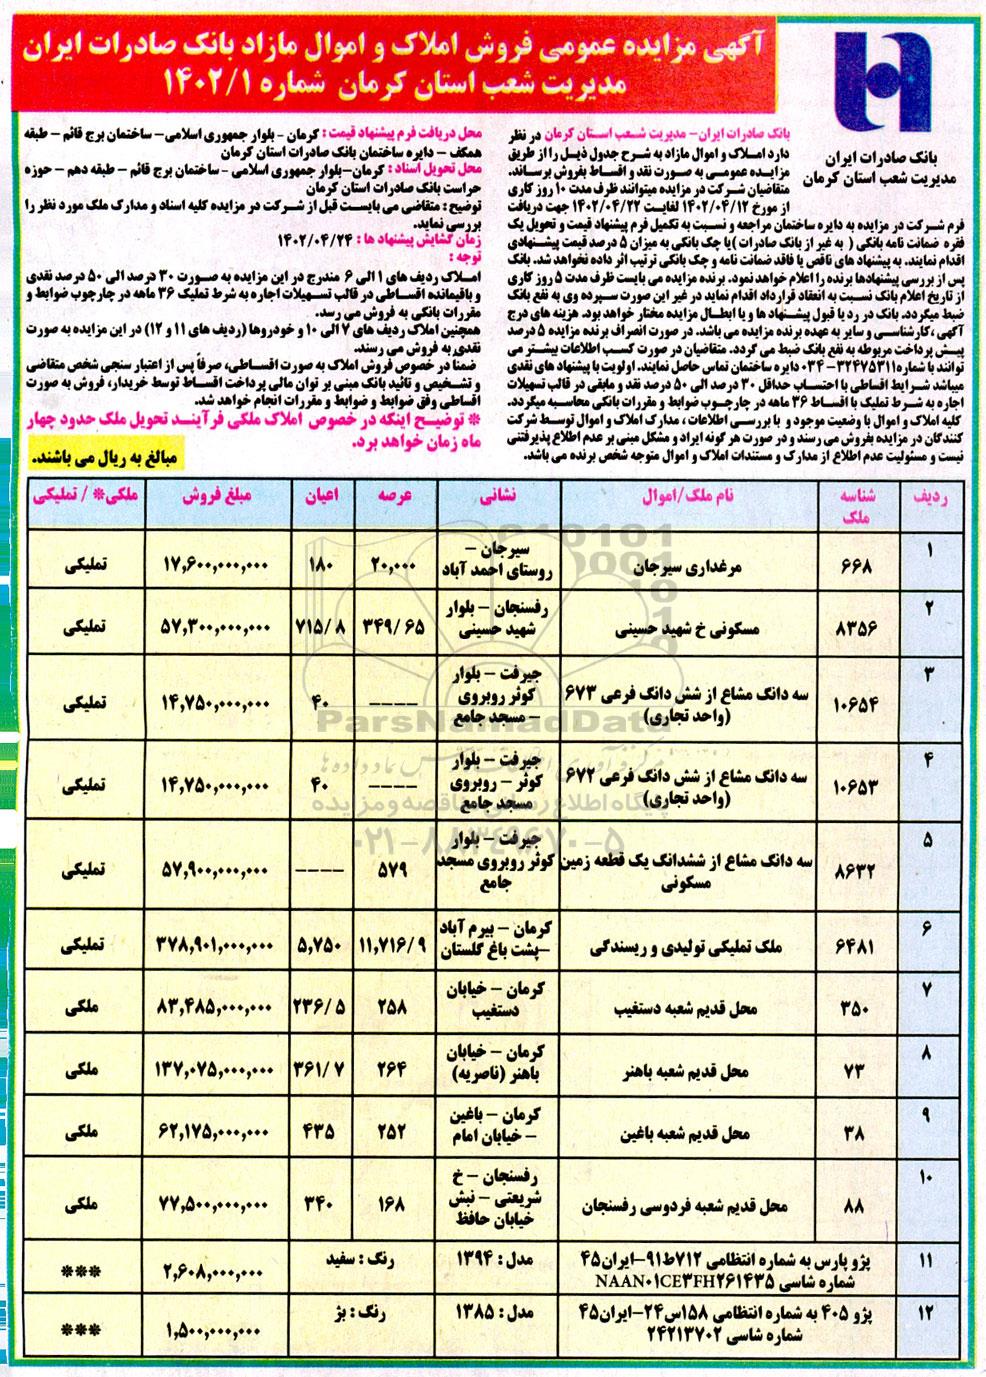 آگهی مزایده عمومی فروش املاک و اموال مازاد بانک صادرات ایران
مدیریت شعب استان کرمان شماره ۱۴۰۲/۱
بانک صادرات ایران
مدیریت شعب استان کرمان
بانک صادرات ایران– مدیریت شعب استان کرمان در نظر
دارد املاک و اموال مازاد به شرح جدول ذیل را از طریق
مزایده عمومی به صورت نقد و اقساط بفروش برساند.
متقاضیان شرکت در مزایده میتوانند ظرف مدت ۱۰ روز کاری
از مورخ ۱۴۰۲/۰۴/۱۲ لغایت ۱۴۰۲/۰۴/۲۲ جهت دریافت
فرم شرکت در مزایده به دایره ساختمان مراجعه و نسبت به تکمیل فرم پیشنهاد قیمت و تحویل یک
فقره ضمانت نامه بانکی ( به غیر از بانک صادرات ) یا چک بانکی به میزان ۵ درصد قیمت پیشنهادی
اقدام نمایند. به پیشنهاد های ناقص یا فاقد ضمانت نامه و چک بانکی ترتیب اثر داده نخواهد شد. بانک
پس از بررسی پیشنهادها برنده را اعلام خواهد نمود. برنده مزایده می بایست ظرف مدت ۵ روز کاری
از تاریخ اعلام بانک نسبت به انعقاد قرارداد اقدام نماید در غیر این صورت سپرده وی به نفع بانک
ضبط میگردد. بانک در رد یا قبول پیشنهاد ها و یا ابطال مزایده مختار خواهد بود. هزینه های درج
آگهی ،کارشناسی و سایر به عهده برنده مزایده می باشد. در صورت انصراف برنده مزایده ۵ درصد
پیش پرداخت مربوطه به نفع بانک ضبط می گردد. متقاضیان در صورت کسب اطلاعات بیشتر می
توانند با شماره ۳۲۴۷۵۳۱۱– ۰۳۴ دایره ساختمان تماس حاصل نمایند. اولویت با پیشنهاد های نقدی
میباشد شرایط اقساطی با احتساب حداقل ۳۰ درصد الی ۵۰ درصد نقد و مابقی در قالب تسهیلات
اجاره به شرط تملیک با اقساط ۳۶ ماهه در چارچوب ضوابط و مقررات بانکی محاسبه میگردد.
کلیه املاک و اموال با وضعیت موجود و با بررسی اطلاعات ، مدارک املاک و اموال توسط شرکت
کنندگان در مزایده بفروش می رسند و در صورت هر گونه ایراد و مشکل مبنی بر عدم اطلاع پذیرفتنی
نیست و مسئولیت عدم اطلاع از مدارک و مستندات املاک و اموال متوجه شخص برنده می باشد.
محل دریافت فرم پیشنهاد قیمت : کرمان – بلوار جمهوری اسلامی– ساختمان برج قائم – طبقه
همکف – دایره ساختمان بانک صادرات استان کرمان
محل تحویل اسناد : کرمان–بلوار جمهوری اسلامی – ساختمان برج قائم – طبقه دهم – حوزه
حراست بانک صادرات استان کرمان
توضیح : متقاضی می بایست قبل از شرکت در مزایده کلیه اسناد و مدارک ملک مورد نظر را
بررسی نماید.
زمان گشایش پیشنهاد ها : ۱۴۰۲/۰۴/۲۴
توجه :
املاک ردیف های ۱ الی ۶ مندرج در این مزایده به صورت ۳۰ درصد الی ۵۰ درصد نقدی
و باقیمانده اقساطی در قالب تسهیلات اجاره به شرط تملیک ۳۶ ماهه در چارچوب ضوابط و
مقررات بانکی به فروش می رسد.
همچنین املاک ردیف های ۷ الی ۱۰ و خودروها (ردیف های ۱۱ و ۱۲) در این مزایده به صورت
نقدی به فروش می رسند.
ضمنا در خصوص فروش املاک به صورت اقساطی، صرفاً پس از اعتبار سنجی شخص متقاضی
و تشخیص و تائید بانک مبنی بر توان مالی پرداخت اقساط توسط خریدار، فروش به صورت
اقساطی وفق ضوابط و ضوابط و مقررات انجام خواهد شد.
* توضیح اینکه در خصوص املاک ملکی فرآیند تحویل ملک حدود چهار
ماه زمان خواهد برد.
مبالغ به ریال می باشند.
ردیف شناسه ملک نام ملک/اموال نشانی عرصه اعیان مبلغ فروش ملکی* / تملیکی
۱ ۶۶۸ مرغداری سیرجان سیرجان – روستای احمد آباد ۲۰,۰۰۰ ۱۸۰ ۱۷,۶۰۰,۰۰۰,۰۰۰ تملیکی
۲ ۸۳۵۶ مسکونی خ شهید حسینی رفسنجان – بلوار شهید حسینی ۳۴۹/۶۵ ۷۱۵/۸ ۵۷,۳۰۰,۰۰۰,۰۰۰ تملیکی
۳ ۱۰۶۵۴ سه دانگ مشاع از شش دانگ فرعی ۶۷۳ (واحد تجاری) جیرفت – بلوار کوثر روبروی – مسجد جامع ---- ۴۰ ۱۴,۷۵۰,۰۰۰,۰۰۰ تملیکی
۴ ۱۰۶۵۳ سه دانگ مشاع از شش دانگ فرعی ۶۷۲ (واحد تجاری) جیرفت – بلوار کوثر – روبروی مسجد جامع ---- ۴۰ ۱۴,۷۵۰,۰۰۰,۰۰۰ تملیکی
۵ ۸۶۳۲ سه دانگ مشاع از ششدانگ یک قطعه زمین مسکونی جیرفت – بلوار کوثر روبروی مسجد جامع ۵۷۹ ---- ۵۷,۹۰۰,۰۰۰,۰۰۰ تملیکی
۶ ۶۴۸۱ ملک تملیکی تولیدی و ریسندگی کرمان – بیرم آباد –پشت باغ گلستان ۱۱,۷۱۶/۹ ۵,۷۵۰ ۳۷۸,۹۰۱,۰۰۰,۰۰۰ تملیکی
۷ ۳۵۰ محل قدیم شعبه دستغیب کرمان – خیابان دستغیب ۲۵۸ ۲۳۶/۵ ۸۳,۴۸۵,۰۰۰,۰۰۰ ملکی
۸ ۷۳ محل قدیم شعبه باهنر کرمان – خیابان باهنر (ناصریه) ۲۶۴ ۳۶۱/۷ ۱۳۷,۰۷۵,۰۰۰,۰۰۰ ملکی
۹ ۳۸ محل قدیم شعبه باغین کرمان – باغین – خیابان امام ۲۵۲ ۴۳۵ ۶۲,۱۷۵,۰۰۰,۰۰۰ ملکی
۱۰ ۸۸ محل قدیم شعبه فردوسی رفسنجان رفسنجان – خ شریعتی – نبش خیابان حافظ ۱۶۸ ۳۴۰ ۷۷,۵۰۰,۰۰۰,۰۰۰ ملکی
۱۱ پژو پارس به شماره انتظامی ۷۱۲ط۹۱–ایران۴۵ شماره شاسی NAAN۰۱CE۳FH۲۶۱۴۳۵ مدل : ۱۳۹۴ رنگ : سفید ۲,۶۰۸,۰۰۰,۰۰۰ ***
۱۲ پژو ۴۰۵ به شماره انتظامی ۱۵۸س۲۴–ایران۴۵ شماره شاسی ۲۴۲۱۳۷۰۲ مدل : ۱۳۸۵ رنگ : بژ ۱,۵۰۰,۰۰۰,۰۰۰ ***
ParsNamadData
پایگاه اطلاع رسانی مناقصه و مزایده
۰۲۱-۸۸۳۴۹۶۷۰-۵